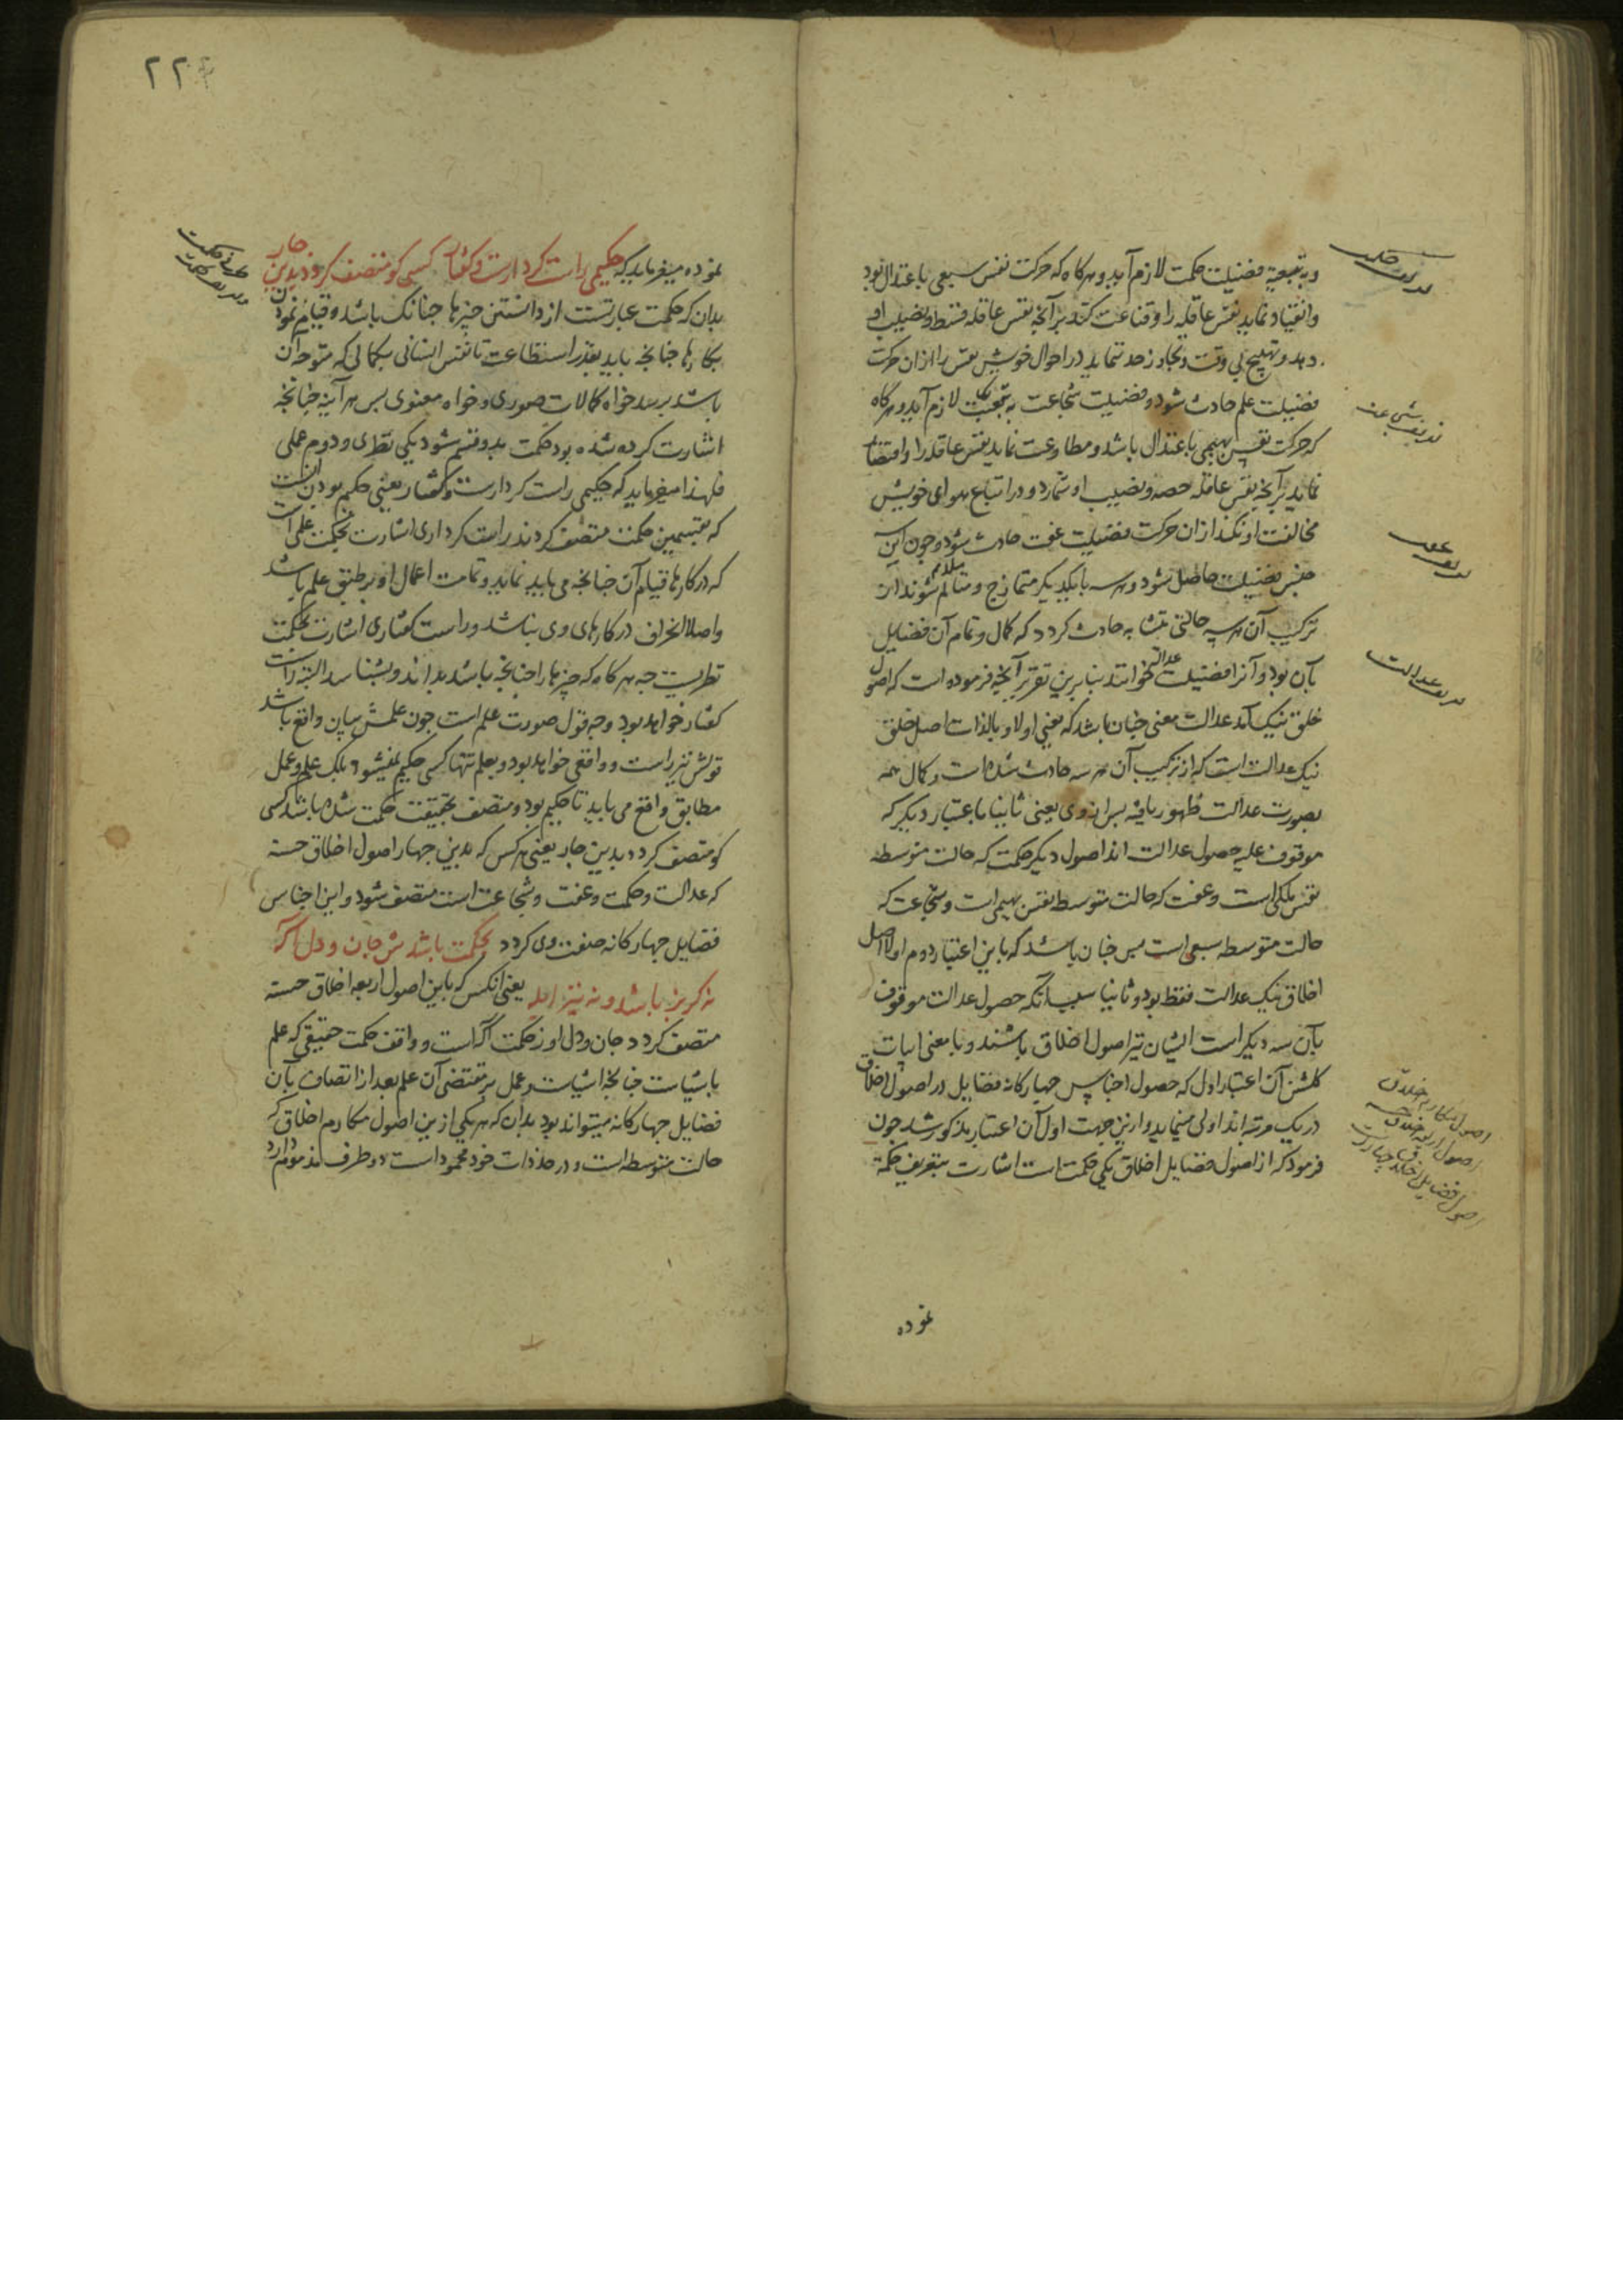 و به تبعیة فضیلت حکمت لازم آید و هرکاه که حرکت نفس سبعی باعتدال بود
و انقیاد نماید نفس عاقله را و قناعت کند بر آنچه نفس عاقله قسط و نصیب او
دهد و تهییج بی وقت و تجاوز حد ننماید در احوال خویش نفس را از ان حرکت
فضیلت علم حادث شود و فضیلت شجاعت به تبعیت لازم آید و هرکاه
که حرکت نفس بهیمی باعتدال باشد و مطاوعت نماید نفس عاقله را و اقتصار
نماید بر آنچه نفس عاقله حصه و نصیب او شمارد و در اتباع هوای خویش
مخالفت او نکند از ان حرکت فضیلت عفت حادث شود و چون این
جنس فضیلت حاصل شود و هر سه بایکدیکر متمازج و متسالم شوند از
ترکیب آن هر سه حالتی متشابه حادث کردد که کمال و تمام آن فضایل
بآن بود و آنرا فضیلت عدالت خوانند بنابرین تقریر آنچه فرموده است که اصول
خلق نیک آمد عدالت معنی چنان باشد که یعنی اولا و بالذات اصل خلق
نیک عدالت است که از ترکیب آن هر سه حادث شده است و کمال همه
بصورت عدالت ظهور یافته پس از وی یعنی ثانیا باعتبار دیکر که
موقوف علیه حصول عدالت اند اصول دیکر حکمت که حالت متوسطه
نفس ملکی است و عفت که حالت متوسط نفس بهیمی است و شجاعت که
حالت متوسطه سبعی است پس چنان باشد که باین اعتبار دوم اولا اصل
اخلاق نیک عدالت فقط بود و ثانیا سبب آنکه حصول عدالت موقوف
بآن سه دیکر است ایشان نیز اصول اخلاق باشند و با معنی ابیات
کلشن آن اعتبار اول که حصول اجناس چهارکانه فضایل در اصول اخلاق
در یک مرتبه اند اولی مینماید و ازین جهت اول آن اعتبار مذکور شد چون
فرمود که از اصول فضایل اخلاق یکی حکمت است اشارت بتعریف حکمة
نموده
تعریف شجاعت
تعریف عفت
تعریف عدالت
اصول مکارم اخلاق
اصول اربعه اخلاق حسنه
اصول فضایل اخلاق چهارست
۲۲۴
نموده میفرماید که حکیمی راست کردارست و کفتار کسی کو متصف کردد بدین چار
بدان که حکمت عبارتست از دانستن چیزها چنانک باشد و قیام نمودن
بکارها چنانچه باید بقدر استطاعت تا نفس انسانی بکمالی که متوجه آن
باشد برسد خواه کمالات صوری و خواه معنوی پس هر آینه چنانچه
اشارت کرده شده بود حکمت بدو قسم شود یکی نظری و دوم عملی
فلهذا میفرماید که حکیمی راست کردارست و کفتار یعنی حکیم بودن آنست
که بقسمین حکمت متصف کردند راست کرداری اشارت بحکمت عملی است
که در کارها قیام آن چنانچه می باید نماید و تمامت اعمال او بر طبق علم باشد
و اصلا انحراف در کارهای وی نباشد و راست کفتاری اشارت بحکمت
نظریست چه هرکاه که چیزها را چنانچه باشد بداند و بشناسد البته راست
کفتار خواهد بود و چه قول صورت علم است چون علمش بیان واقع باشد
قولش نیز راست و واقعی خواهد بود و بعلم تنها کسی حکیم نمیشود بلک علم و عمل
مطابق واقع می باید تا حکیم بود و متصف بحقیقت حکمت شده باشد کسی
کو متصف کردد بدین چار یعنی هرکس که بدین چهار اصول اخلاق حسنه
که عدالت و حکمت و عفت و شجاعت است متصف شود و این اجناس
فضایل چهارکانه صفت وی کردد بحکمت باشدش جان و دل آکه
نه کربز باشد و نه نیز ابله یعنی آنکس که باین اصول اربعه اخلاق حسنه
متصف کردد جان و دل او ز حکمت آکاست و واقف حکمت حقیقی که علم
باشیاست چنانچه اشیاست و عمل بر مقتضی آن علم بعد از اتصاف بآن
فضایل چهارکانه میتواند بود بدان که هر یکی ازین اصول مکارم اخلاق که
حالت متوسطه است و در حد ذات خود محمودست دو طرف مذموم دارد
تعریف حکمت